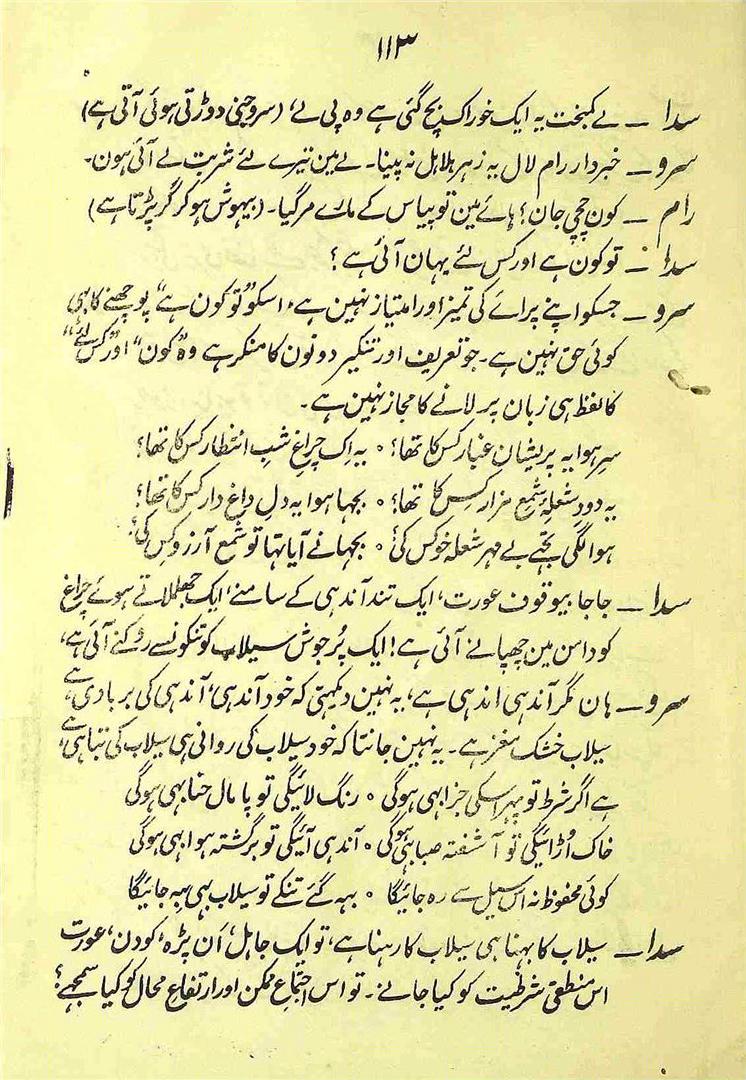 ۱۱۳
سدا ـ لے کمبخت یہ ایک خوراک بچ گئی ہے وہ پی لے، (سروجنی دوڑتی ہوئی آتی ہے)
سرو ـ خبردار رام لال یہ زہر ہلاہل نہ پینا۔ لے مین تیرے لئے شربت لے آئی ہون۔
رام ـ کون چچی جان؟ ہائے مین تو پیاس کے مارے مر گیا۔ (بیہوش ہو کر گر پڑتا ہے)
سدا ـ تو کون ہے اور کس لئے یہان آئی ہے؟
سرو ـ جسکو اپنے پرائے کی تمیز اور امتیاز نہین ہے، اسکو "تو کون ہے" پوچھنے کا بھی
کوئی حق نہین ہے۔ جو تعریف اور تنکیر دونون کا منکر ہے وہ "کون" اور "کس لئے"
کا لفظ ہی زبان پر لانے کا مجاز نہین ہے۔
سرِ ہوا یہ پریشان غبار کس کا تھا؟ ٭ یہ اِک چراغِ شبِ انتظار کس کا تھا؟
یہ دودِ شعلۂ شمعِ مزار کس کا تھا؟ ٭ بجہا ہوا یہ دلِ داغ دار کس کا تھا؟
ہوا لگی تجھے بے مہر شعلہ خو کس کی؟ ٭ بجہانے آیا تہا تو شمع آرزو کس کی؟
سدا ـ جا جا بیوقوف عورت، ایک تند آندہی کے سامنے، ایک جھلملاتے ہوئے چراغ
کو دامن مین چھپانے آئی ہے! ایک پُر جوش سیلاب کو تنکونسے روکنے آئی ہے،
سرو ـ ہان مگر آندہی اندہی ہے، یہ نہین دیکہتی کہ خود آندہی، آندہی کی بربادی ہے
سیلاب خشک مغز ہے۔ یہ نہین جانتا کہ خود سیلاب کی روانی ہی سیلاب کی تباہی ہے،
ہے اگر شرط تو پہر اسکی جزا بہی ہوگی ٭ رنگ لائیگی تو پامال حنا بہی ہوگی
خاک اُڑائیگی تو آشفتہ صبا بہی ہوگی ٭ آندہی آئیگی تو برگشتہ ہوا بہی ہوگی
کوئی محفوظ نہ اس سیل سے رہ جائیگا ٭ بہہ گئے تنکے تو سیلاب بہی بہہ جائیگا
سدا ـ سیلاب کا بہنا ہی سیلاب کا رہنا ہے، تو ایک جاہل، اَن پڑہ، کودن، عورت
اس منطقی شرطیت کو کیا جانے۔ تو اس اجتماعِ ممکن اور ارتفاعِ محال کو کیا سمجھے؟